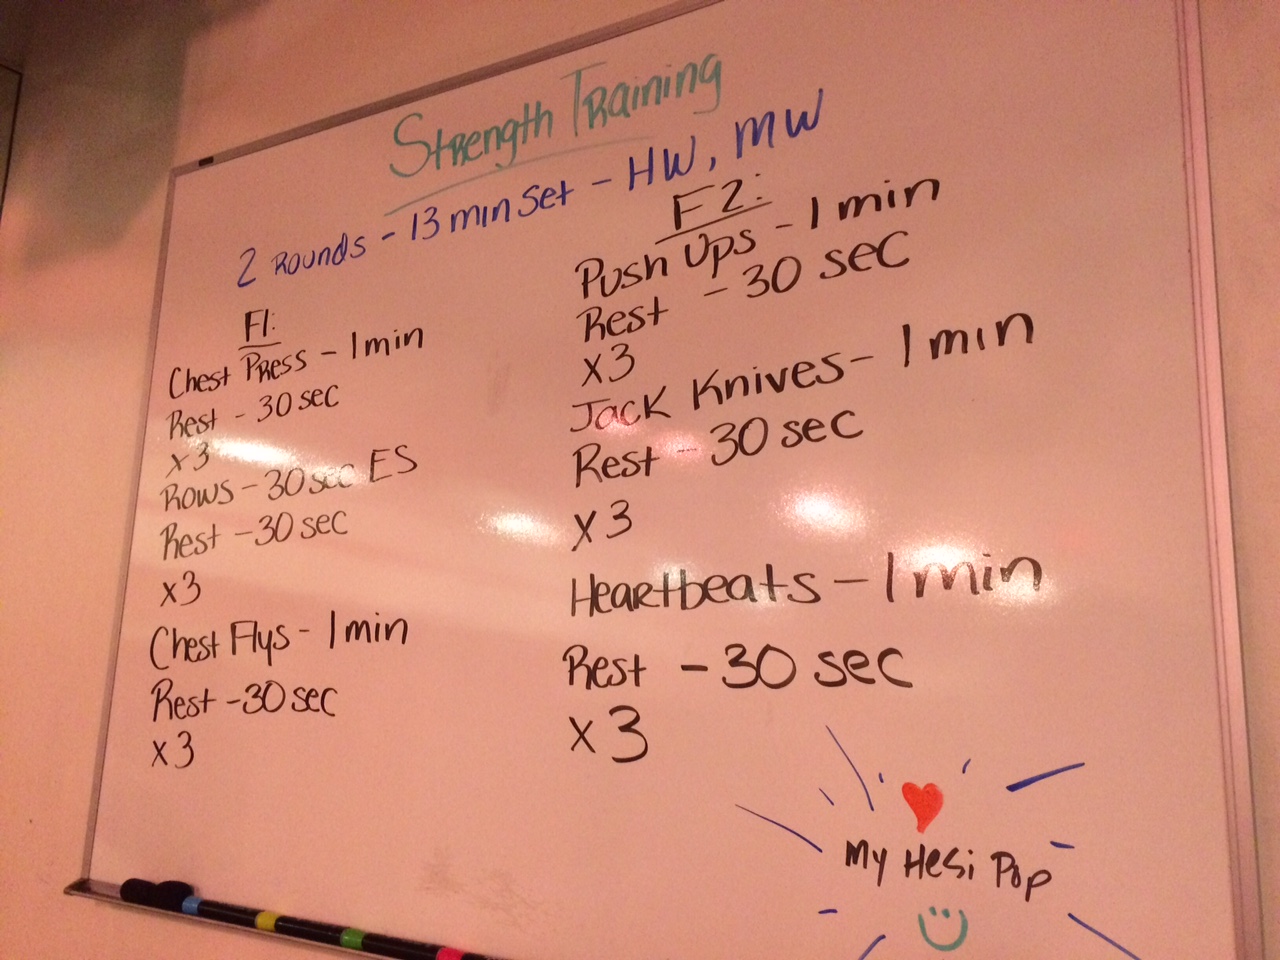 Strength Training
2 Rounds - 13 min Set - HW, MW
F1:
Chest Press - 1 min
Rest - 30 sec
x3
Rows - 30 sec ES
Rest - 30 sec
x3
Chest Flys - 1 min
Rest - 30 sec
x3
F2:
Push Ups - 1 min
Rest - 30 sec
x3
Jack Knives - 1 min
Rest - 30 sec
x3
Heartbeats - 1 min
Rest - 30 sec
x3
My Hesi Pop